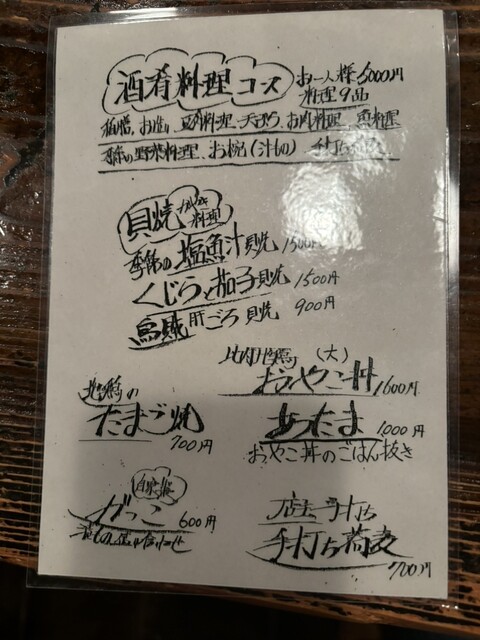 酒肴料理コース お一人様5000円
料理9品
お造り 天ぷら、お肉料理、魚料理
季節の野菜料理、お椀(汁もの) 手打ち
貝焼 料理
季節の塩魚汁貝焼 1500円
くじらと茄子貝焼 1500円
烏賊肝ごろ貝焼 900円
比内地鶏 (大)
おやこ丼 1600円
地鶏の
たまご焼
700円
あったま 1000円
おやこ丼のごはん抜き
自家製
がっこ 600円
店主手打ち
手打ち蕎麦
700円